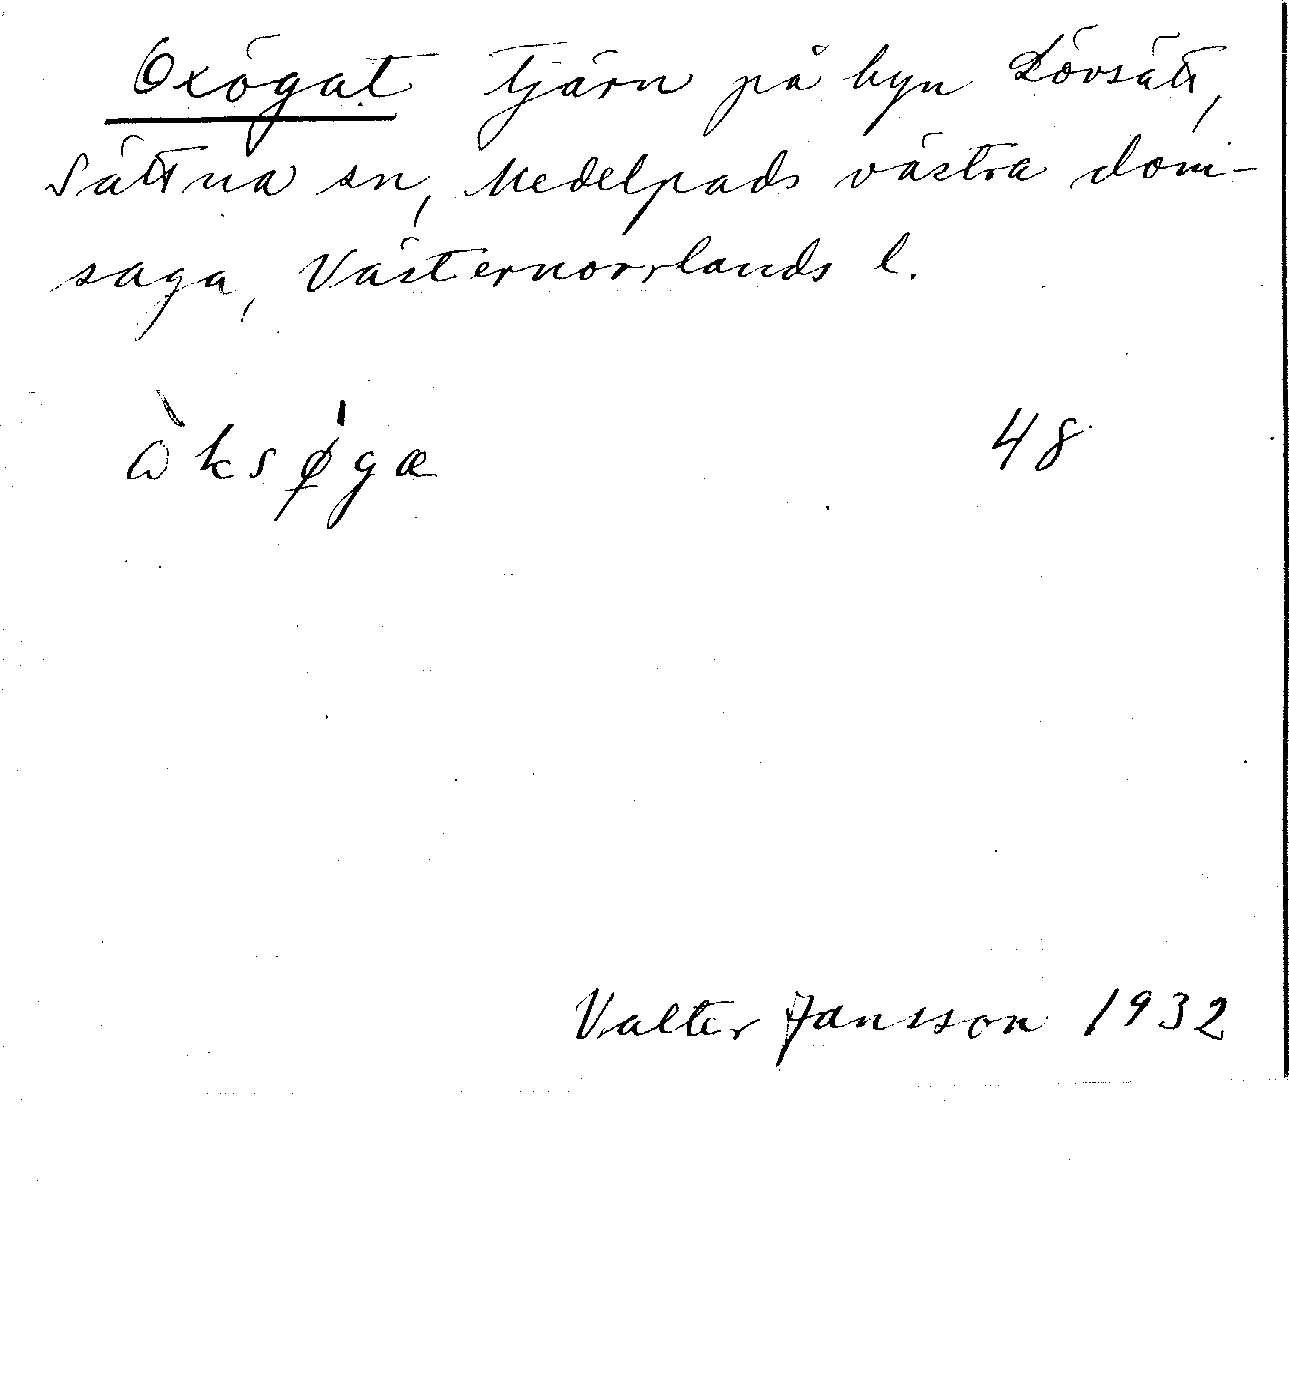 Oxögat Tjärn på byn Lövsätt,
Sättna sn, Medelpads västra dom-
saga, Västernorrlands l.
48
Valter Jansson 1932